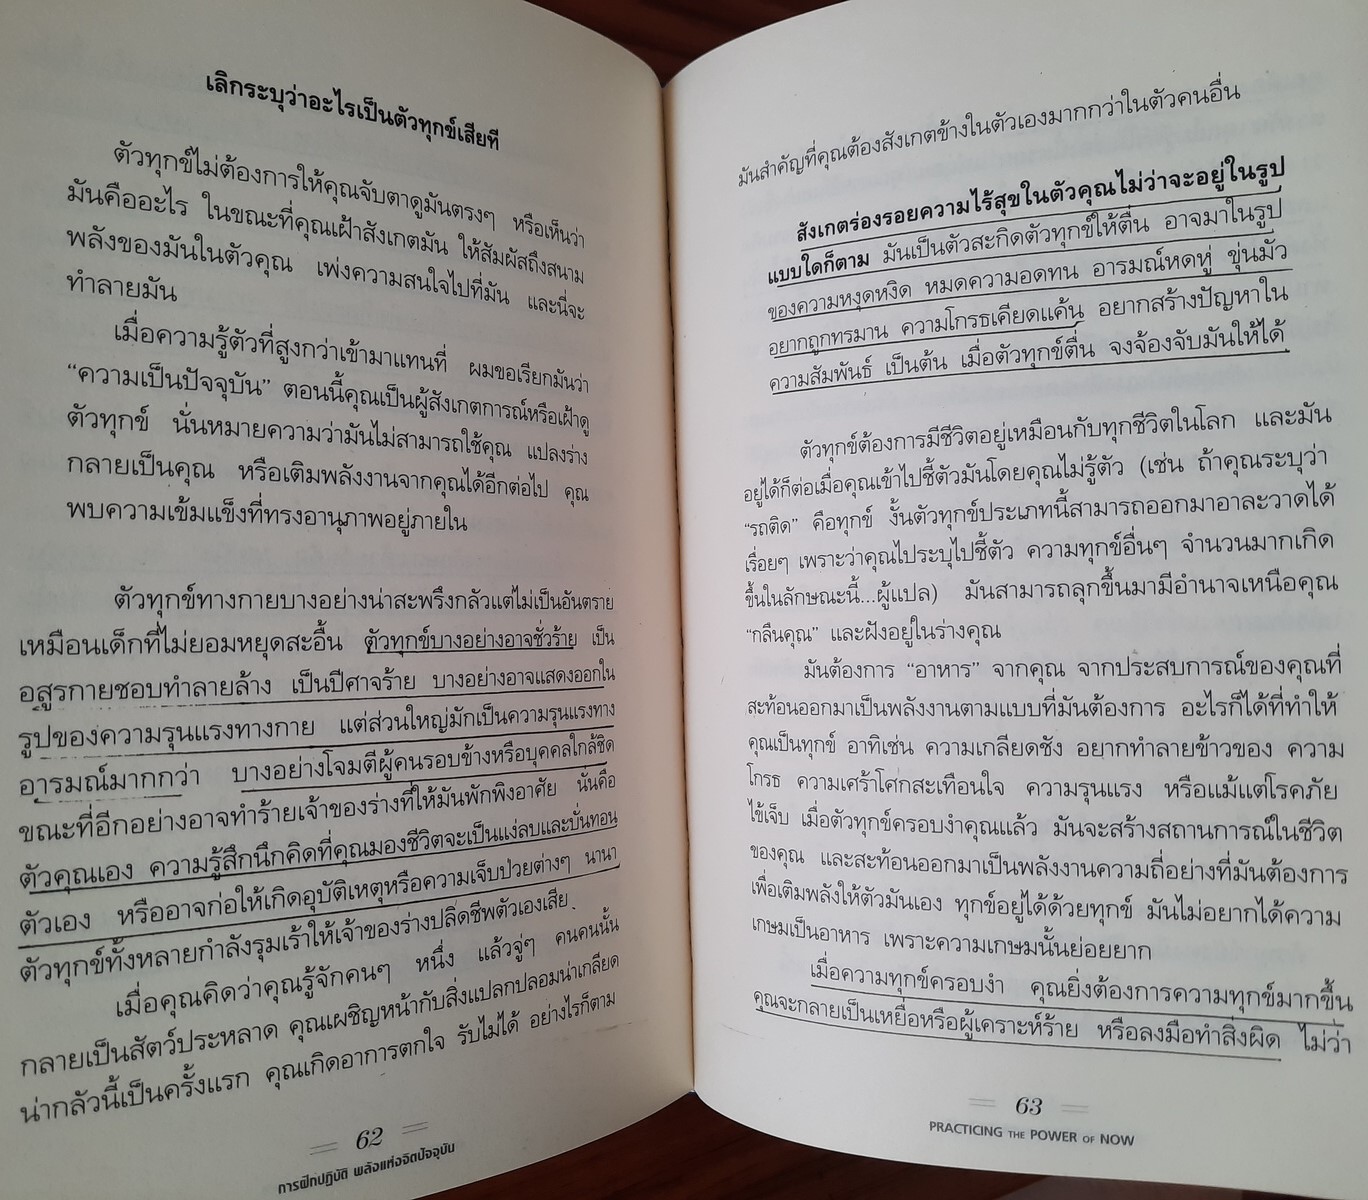 เลิกระบุว่าอะไรเป็นตัวทุกข์เสียที
ตัวทุกข์ไม่ต้องการให้คุณจับตาดูมันตรงๆ หรือเห็นว่า
มันคืออะไร ในขณะที่คุณเฝ้าสังเกตมัน ให้สัมผัสถึงสนาม
พลังของมันในตัวคุณ เพ่งความสนใจไปที่มัน และนี่จะ
ทำลายมัน
เมื่อความรู้ตัวที่สูงกว่าเข้ามาแทนที่ ผมขอเรียกมันว่า
“ความเป็นปัจจุบัน” ตอนนี้คุณเป็นผู้สังเกตการณ์หรือเฝ้าดู
ตัวทุกข์ นั่นหมายความว่ามันไม่สามารถใช้คุณ แปลงร่าง
กลายเป็นคุณ หรือเติมพลังงานจากคุณได้อีกต่อไป คุณ
พบความเข้มแข็งที่ทรงอานุภาพอยู่ภายใน
ตัวทุกข์ทางกายบางอย่างน่าสะพรึงกลัวแต่ไม่เป็นอันตราย
เหมือนเด็กที่ไม่ยอมหยุดสะอื้น ตัวทุกข์บางอย่างอาจชั่วร้าย เป็น
อสูรกายชอบทำลายล้าง เป็นปีศาจร้าย บางอย่างอาจแสดงออกใน
รูปของความรุนแรงทางกาย แต่ส่วนใหญ่มักเป็นความรุนแรงทาง
อารมณ์มากกว่า บางอย่างโจมตีผู้คนรอบข้างหรือบุคคลใกล้ชิด
ขณะที่อีกอย่างอาจทำร้ายเจ้าของร่างที่ให้มันพักพิงอาศัย นั่นคือ
ตัวคุณเอง ความรู้สึกนึกคิดที่คุณมองชีวิตจะเป็นแง่ลบและบั่นทอน
ตัวเอง หรืออาจก่อให้เกิดอุบัติเหตุหรือความเจ็บป่วยต่างๆ นานา
ตัวทุกข์ทั้งหลายกำลังรุมเร้าให้เจ้าของร่างปลิดชีพตัวเองเสีย
เมื่อคุณคิดว่าคุณรู้จักคนๆ หนึ่ง แล้วจู่ๆ คนคนนั้น
กลายเป็นสัตว์ประหลาด คุณเผชิญหน้ากับสิ่งแปลกปลอมน่าเกลียด
น่ากลัวนี้เป็นครั้งแรก คุณเกิดอาการตกใจ รับไม่ได้ อย่างไรก็ตาม
62
การฝึกปฏิบัติ พลังแห่งจิตปัจจุบัน
มันสำคัญที่คุณต้องสังเกตข้างในตัวเองมากกว่าในตัวคนอื่น
สังเกตร่องรอยความไร้สุขในตัวคุณไม่ว่าจะอยู่ในรูป
แบบใดก็ตาม มันเป็นตัวสะกิดตัวทุกข์ให้ตื่น อาจมาในรูป
ของความหงุดหงิด หมดความอดทน อารมณ์หดหู่ ขุ่นมัว
อยากถูกทรมาน ความโกรธเคียดแค้น อยากสร้างปัญหาใน
ความสัมพันธ์ เป็นต้น เมื่อตัวทุกข์ตื่น จงจ้องจับมันให้ได้
ตัวทุกข์ต้องการมีชีวิตอยู่เหมือนกับทุกชีวิตในโลก และมัน
อยู่ได้ก็ต่อเมื่อคุณเข้าไปชี้ตัวมันโดยคุณไม่รู้ตัว (เช่น ถ้าคุณระบุว่า
“รถติด” คือทุกข์ งั้นตัวทุกข์ประเภทนี้สามารถออกมาอาละวาดได้
เรื่อยๆ เพราะว่าคุณไประบุไปชี้ตัว ความทุกข์อื่นๆ จำนวนมากเกิด
ขึ้นในลักษณะนี้...ผู้แปล) มันสามารถลุกขึ้นมามีอำนาจเหนือคุณ
“กลืนคุณ” และฝังอยู่ในร่างคุณ
มันต้องการ “อาหาร” จากคุณ จากประสบการณ์ของคุณที่
สะท้อนออกมาเป็นพลังงานตามแบบที่มันต้องการ อะไรก็ได้ที่ทำให้
คุณเป็นทุกข์ อาทิเช่น ความเกลียดชัง อยากทำลายข้าวของ ความ
โกรธ ความเศร้าโศกสะเทือนใจ ความรุนแรง หรือแม้แต่โรคภัย
ไข้เจ็บ เมื่อตัวทุกข์ครอบงำคุณแล้ว มันจะสร้างสถานการณ์ในชีวิต
ของคุณ และสะท้อนออกมาเป็นพลังงานความถี่อย่างที่มันต้องการ
เพื่อเติมพลังให้ตัวมันเอง ทุกข์อยู่ได้ด้วยทุกข์ มันไม่อยากได้ความ
เกษมเป็นอาหาร เพราะความเกษมนั้นย่อยยาก
เมื่อความทุกข์ครอบงำ คุณยิ่งต้องการความทุกข์มากขึ้น
คุณจะกลายเป็นเหยื่อหรือผู้เคราะห์ร้าย หรือลงมือทำสิ่งผิด ไม่ว่า
63
PRACTICING THE POWER OF NOW